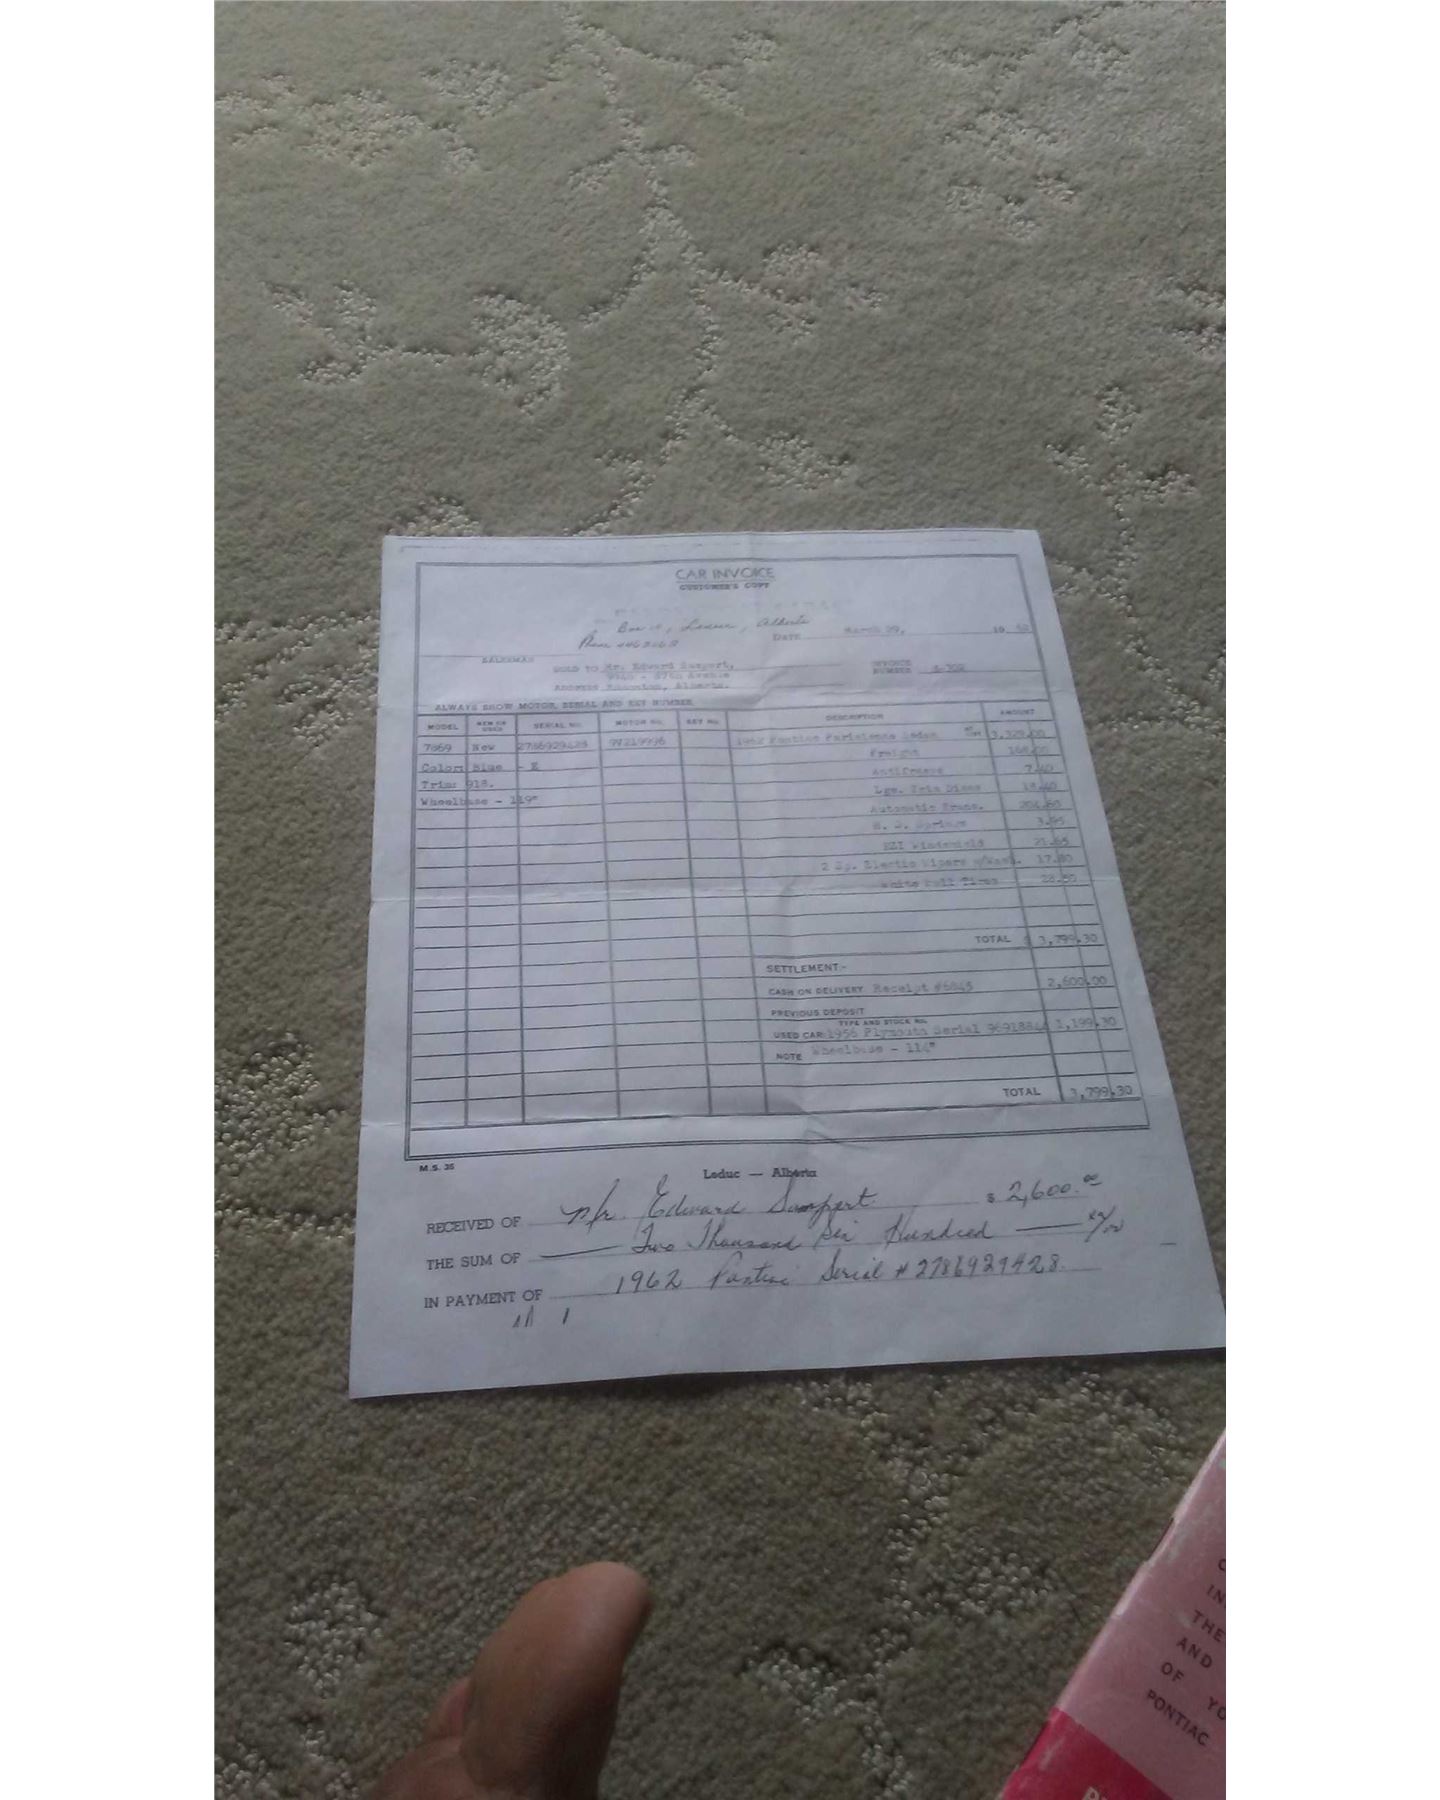 CAR INVOICE
CUSTOMER'S COPY
Alberta
Phone
DATE March 29, 19 62
SALESMAN
SOLD TO Mr. Edward
87th Avenue
ADDRESS Edmonton, Alberta.
INVOICE NUMBER
ALWAYS SHOW MOTOR, SERIAL AND KEY NUMBER
MODEL NEW OR USED SERIAL NO. MOTOR NO. KEY NO. DESCRIPTION AMOUNT
7869 New 2786929428 1962 Pontiac Parisienne Sedan 3,329.00
Color: Blue - E Freight 168.00
Trim: 918. Antifreeze 7.40
Wheelbase - 119" Lge. Trim Discs
Automatic Trans. 204.60
H. D. Springs 3.95
EZI Windshield 21.65
2 Sp. Electic Wipers w/Wash. 17.80
White Wall Tires 28.50
TOTAL $ 3,799.30
SETTLEMENT:-
CASH ON DELIVERY Receipt #6845 2,600.00
PREVIOUS DEPOSIT
TYPE AND STOCK NO.
USED CAR: 1956 Plymouth Serial 1,199.30
NOTE Wheelbase - 114"
TOTAL 3,799.30
M.S. 35
Leduc — Alberta
RECEIVED OF Mr. Edward $ 2,600.00
THE SUM OF Two Thousand Six Hundred
IN PAYMENT OF 1962 Pontiac Serial # 2786929428.
THE
AND
OF YO
PONTIAC